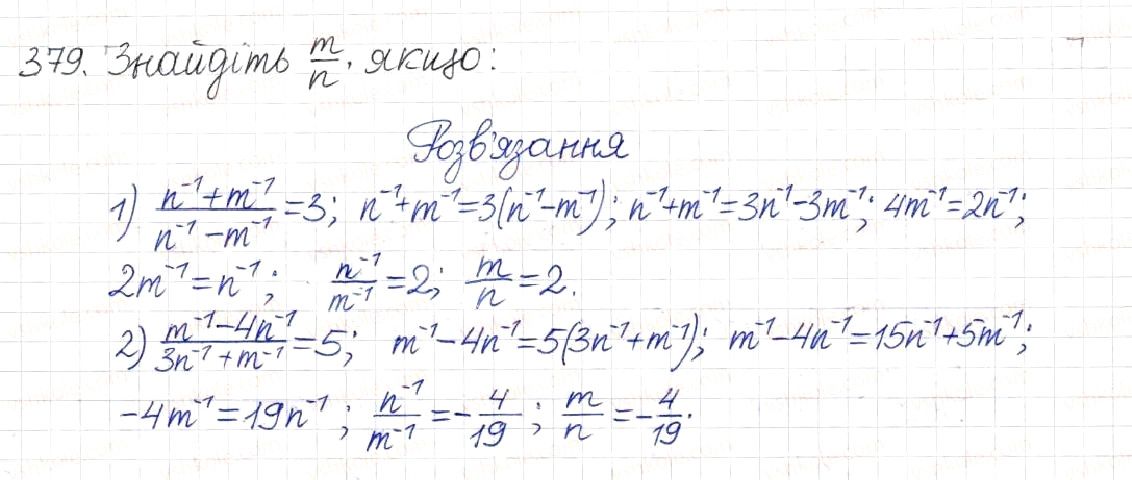 379. Знайдіть m/n, якщо:
Розв'язання
1) (n⁻¹+m⁻¹)/(n⁻¹−m⁻¹)=3; n⁻¹+m⁻¹=3(n⁻¹−m⁻¹); n⁻¹+m⁻¹=3n⁻¹−3m⁻¹; 4m⁻¹=2n⁻¹;
2m⁻¹=n⁻¹; n⁻¹/m⁻¹=2; m/n=2.
2) (m⁻¹−4n⁻¹)/(3n⁻¹+m⁻¹)=5; m⁻¹−4n⁻¹=5(3n⁻¹+m⁻¹); m⁻¹−4n⁻¹=15n⁻¹+5m⁻¹;
−4m⁻¹=19n⁻¹; n⁻¹/m⁻¹=−4/19; m/n=−4/19.